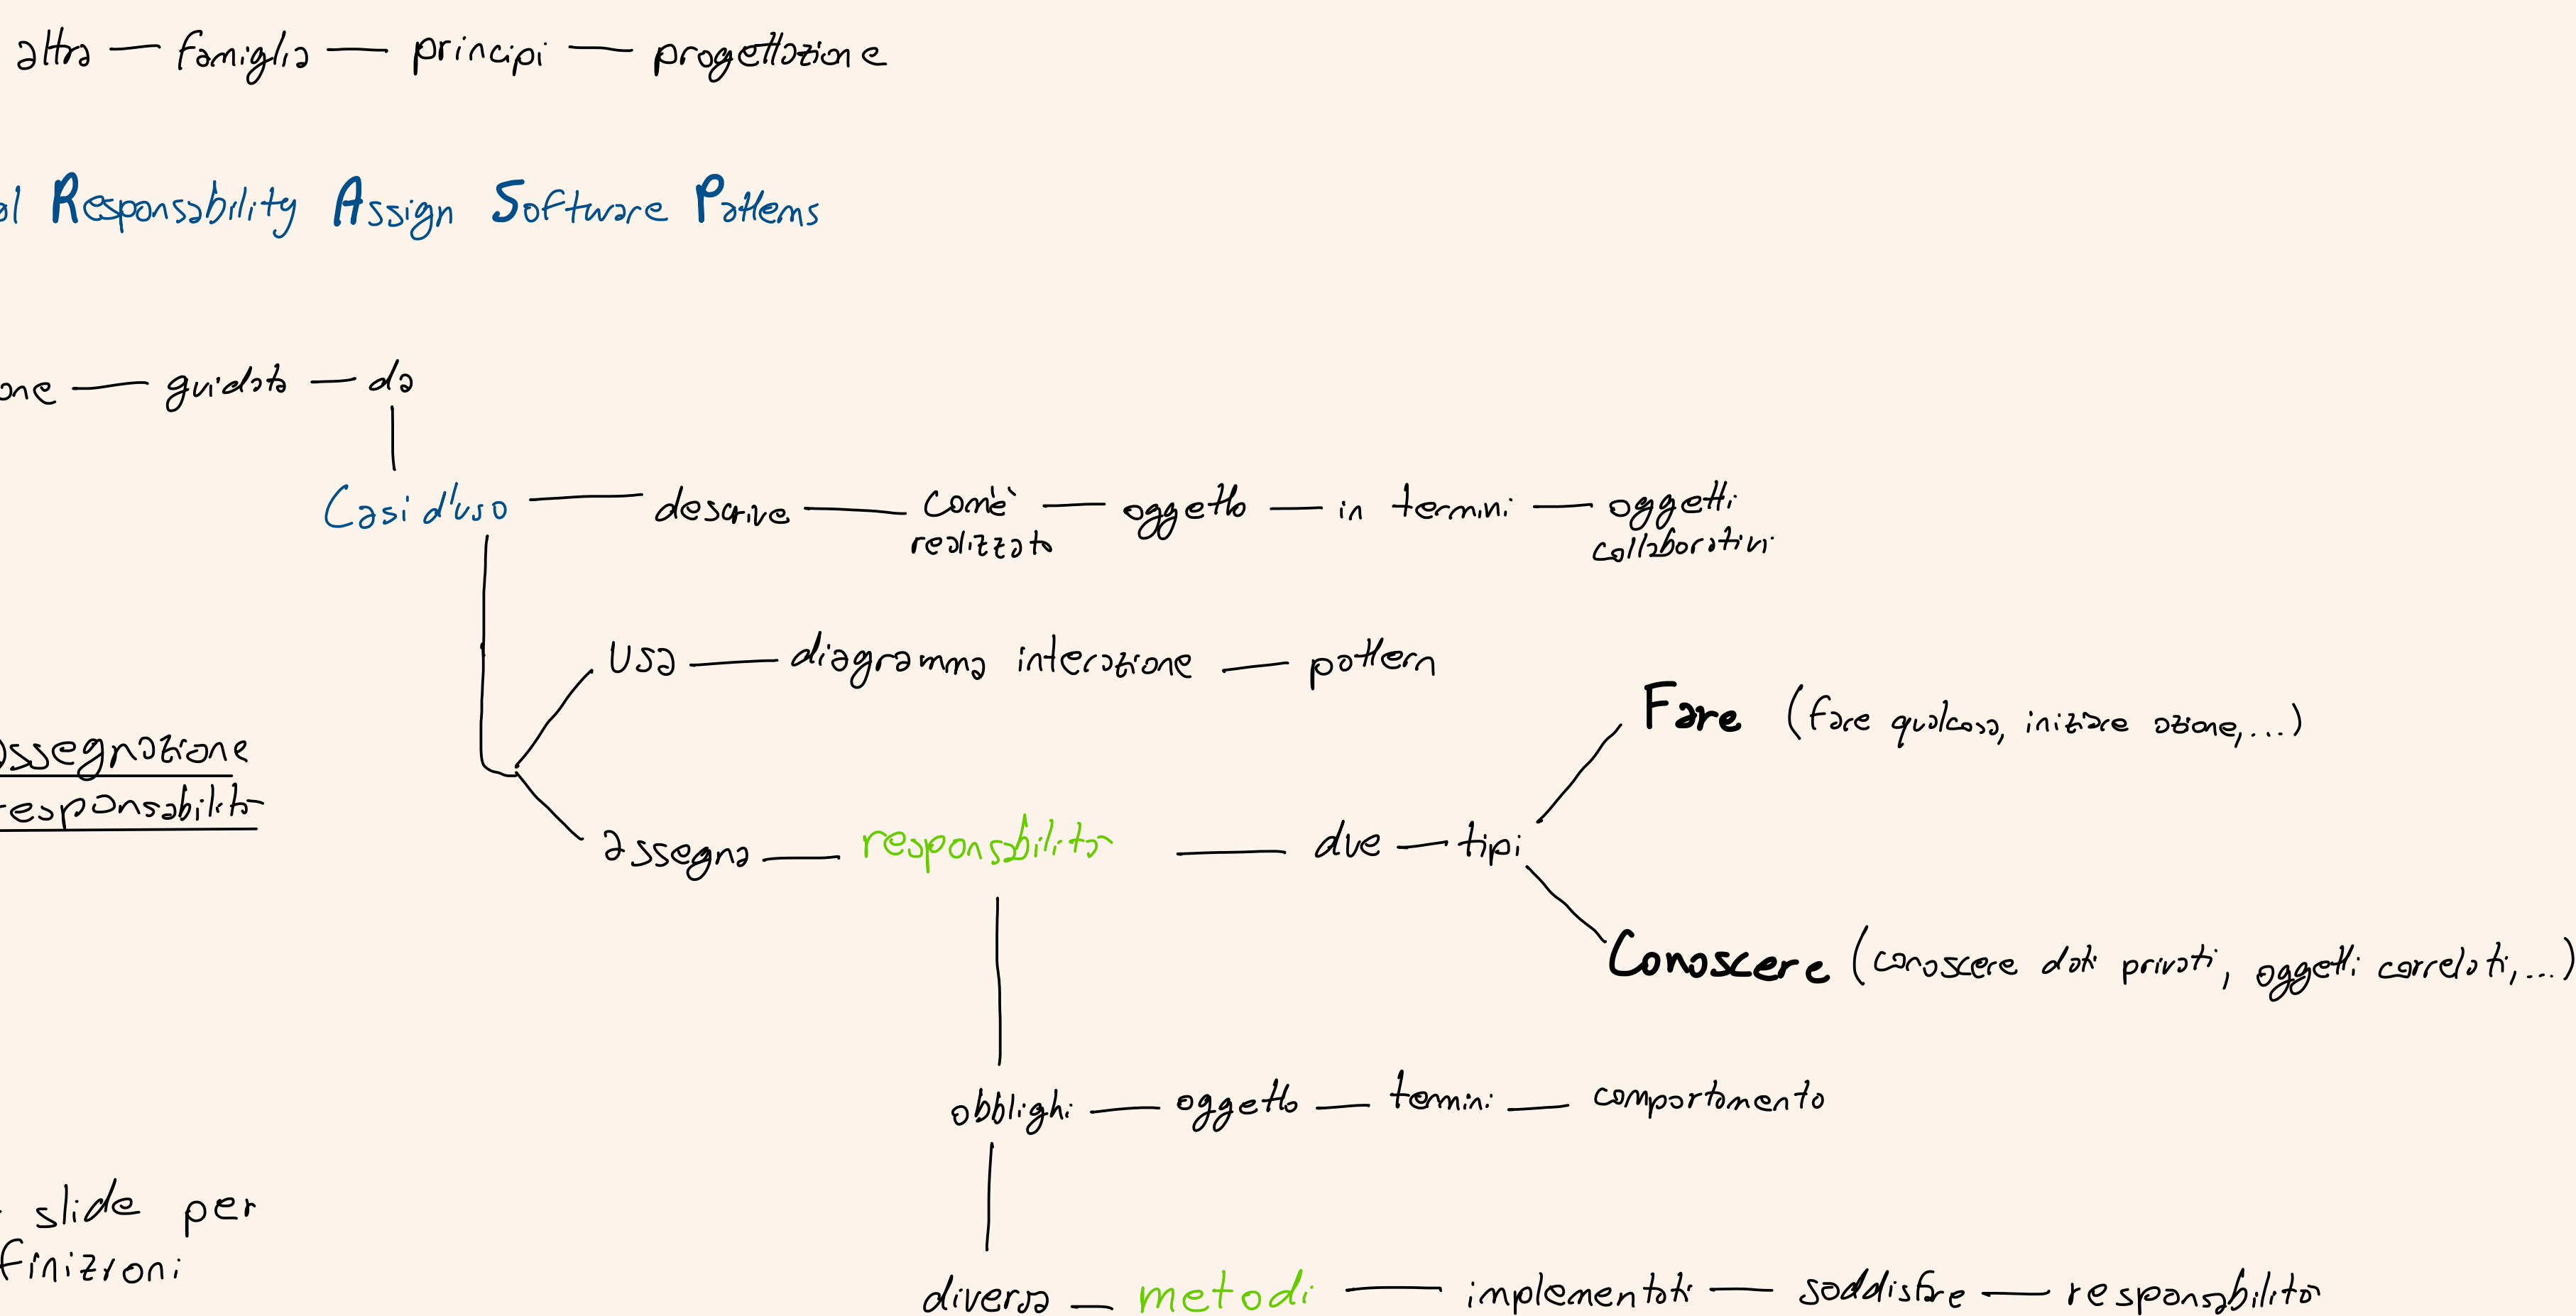 altra — famiglia — principi — progettazione
al Responsability Assign Software Patterns
one — guidata — da
Casi d'uso — descrive — com'è — oggetto — in termini — oggetti
realizzato collaborativi
usa — diagramma interazione — pattern
Fare (fare qualcosa, iniziare azione,...)
assegnazione
responsabilità
assegna — responsabilità — due — tipi
Conoscere (conoscere dati privati, oggetti correlati,...)
obblighi — oggetto — termini — comportamento
slide per
finizioni
diversa — metodi — implementati — soddisfare — responsabilità